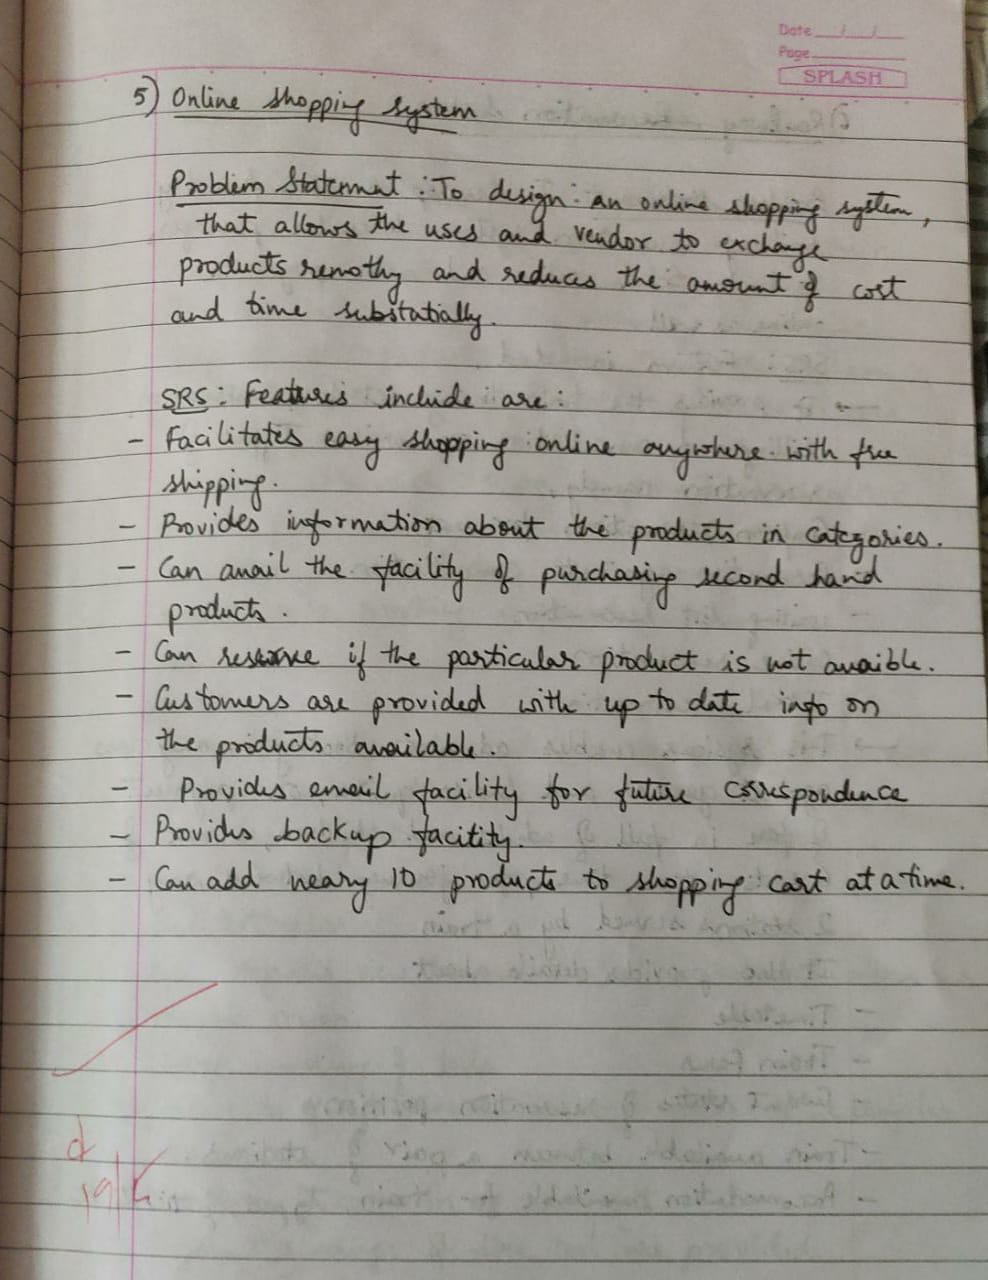 Date / /
Page
SPLASH
5) Online shopping system
Problem Statemnt : To design an online shopping system,
that allows the uses and vendor to exchange
products remothy and reduces the amount of cost
and time substatially.
SRS : Features include are :
- Facilitates easy shopping online anywhere with free
shipping.
- Provides information about the products in categories.
- Can avail the facility of purchasing second hand
products.
- Can reserve if the particular product is not avaible.
- Customers are provided with up to date info on
the products available.
- Provides email facility for future correspondence
- Provides backup facitity.
- Can add neary 10 products to shopping cart at a time.